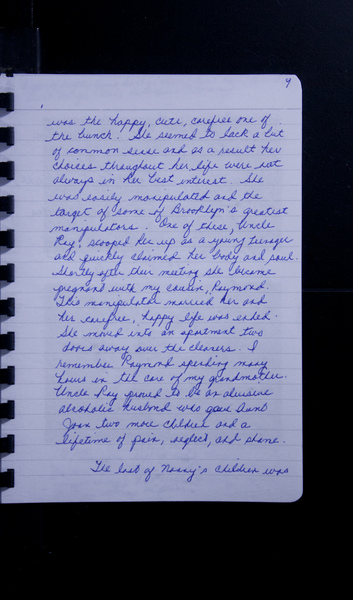 9
was the happy, cute, carefree one of
the bunch. She seemed to lack a bit
of common sense and as a result her
choices throughout her life were not
always in her best interest. She
was easily manipulated and the
target of some of Brooklyn's greatest
manipulators. One of these, Uncle
Ray, scooped her up as a young teenager
and quickly claimed her body and soul.
Shortly after their meeting she became
pregnant with my cousin, Raymond.
This manipulator married her and
her carefree, happy life was ended.
She moved into an apartment two
doors away over the cleaners. I
remember Raymond spending many
hours in the care of my grandmother.
Uncle Ray proved to be an abusive
alcoholic husband who gave Aunt
Joan two more children and a
lifetime of pain, neglect, and shame.
The last of Nanny's children was